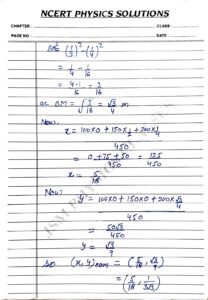 NCERT PHYSICS SOLUTIONS
CHAPTER : CLASS :
PAGE NO : DATE :
BM² = (1/2)² - (1/4)²
= 1/4 - 1/16
= 4-1/16 = 3/16
or BM = √3/16 = √3/4 m
Now,
x = 100×0 + 150×1/2 + 200×1/4
450
= 0 + 75 + 50 / 450 = 125/450
x = 5/18
Now,
y = 100×0 + 150×0 + 200×√3/4
450
= 50√3/450
y = √3/9
so (x, y)com = (5/18, √3/9)
= (5/18, 1/3√3)